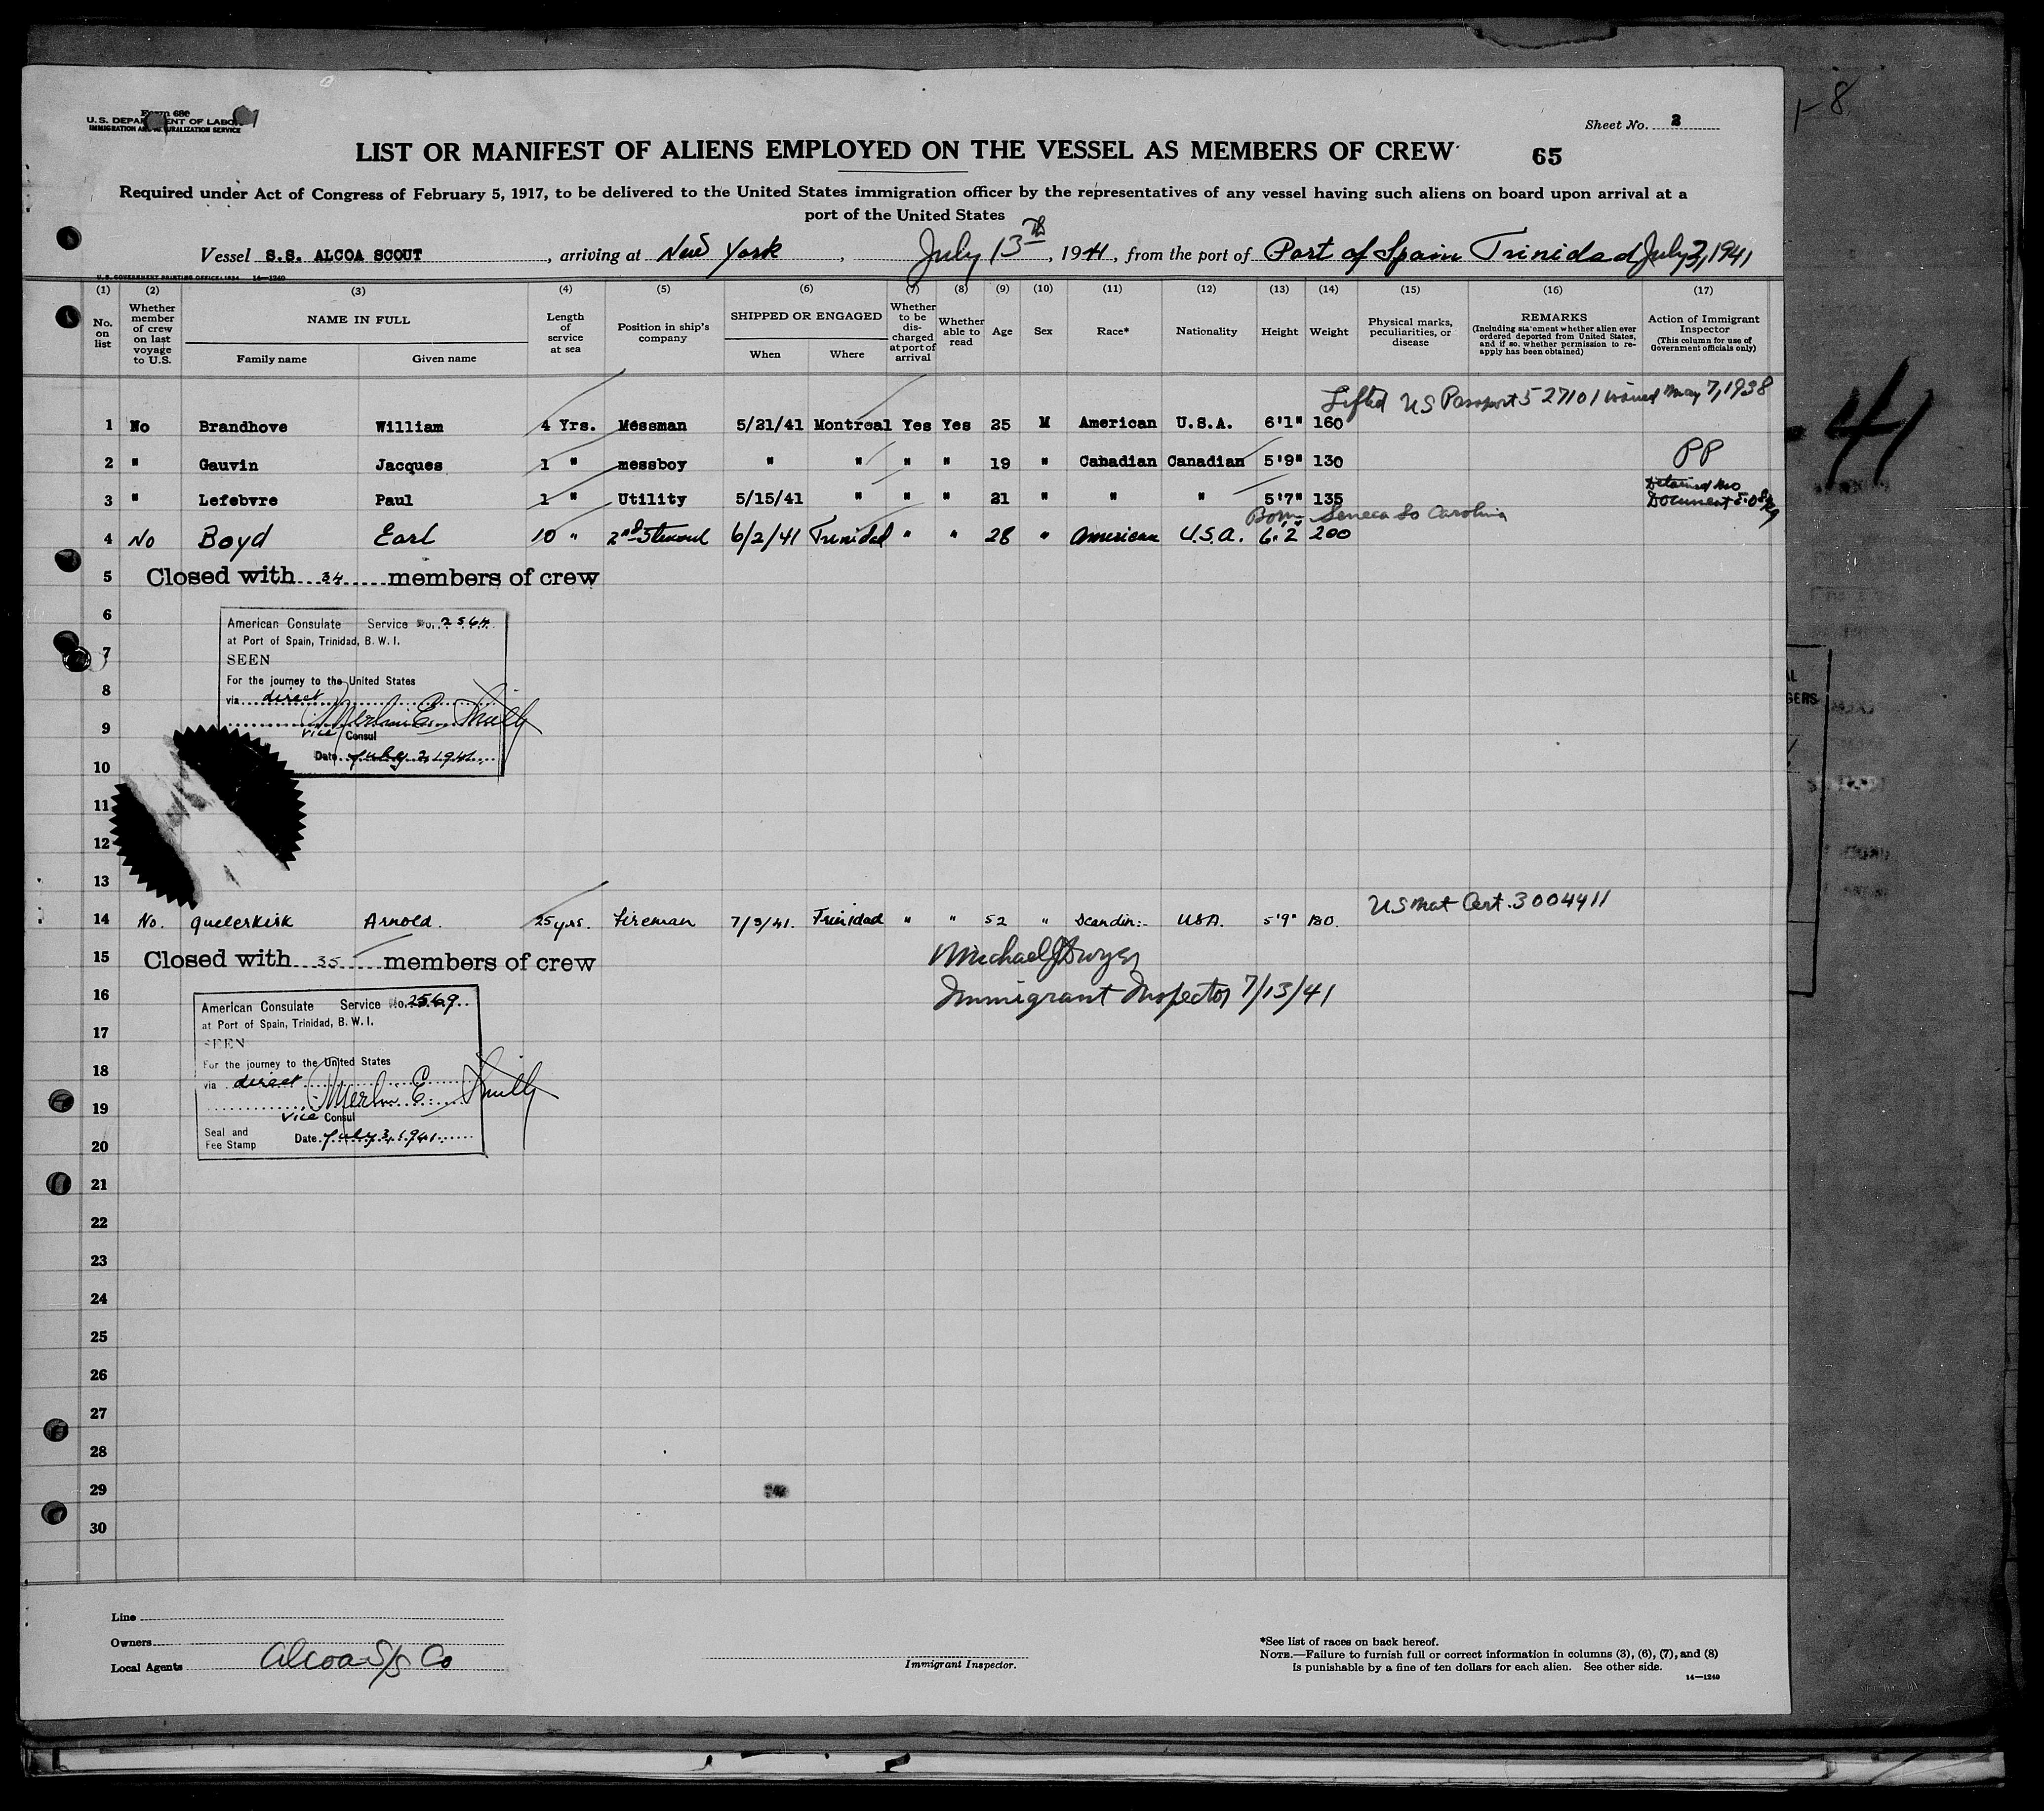 Form 680
U.S. DEPARTMENT OF LABOR
IMMIGRATION AND NATURALIZATION SERVICE
Sheet No. 2
LIST OR MANIFEST OF ALIENS EMPLOYED ON THE VESSEL AS MEMBERS OF CREW
65
Required under Act of Congress of February 5, 1917, to be delivered to the United States immigration officer by the representatives of any vessel having such aliens on board upon arrival at a
port of the United States
Vessel S.S. ALCOA SCOUT, arriving at New York, July 13th, 1941, from the port of Port of Spain Trinidad July 3, 1941
U.S. GOVERNMENT PRINTING OFFICE: 1934 14—1240
(1) (2) (3) (4) (5) (6) (7) (8) (9) (10) (11) (12) (13) (14) (15) (16) (17)
No. on list
Whether member of crew on last voyage to U.S.
NAME IN FULL
Family name Given name
Length of service at sea
Position in ship's company
SHIPPED OR ENGAGED
When Where
Whether to be discharged at port of arrival
Whether able to read
Age
Sex
Race*
Nationality
Height
Weight
Physical marks, peculiarities, or disease
REMARKS
(Including statement whether alien ever ordered deported from United States, and if so, whether permission to reapply has been obtained)
Action of Immigrant Inspector
(This column for use of Government officials only)
Lifted US Passport 527101 issued May 7, 1938
1 No Brandhove William 4 Yrs. Messman 5/21/41 Montreal Yes Yes 25 M American U.S.A. 6'1" 160
2 " Gauvin Jacques 1 " messboy " " " " 19 " Canadian Canadian 5'9" 130 PP
3 " Lefebvre Paul 1 " Utility 5/15/41 " " " 21 " " " 5'7" 135 Detained No Document
Born Seneca So Carolina
4 No Boyd Earl 10 " 2nd Steward 6/2/41 Trinidad " " 28 " American U.S.A. 6'2" 200
5 Closed with 34 members of crew
6
American Consulate Service No. 2564
at Port of Spain, Trinidad, B.W.I.
7
SEEN
For the journey to the United States
8
via direct
Merlin E. Smith
9
Vice Consul
Date July 2, 1941
10
11
12
13
US Nat Cert. 3004411
14 No. Quelerkisk Arnold. 25 yrs. Fireman 7/3/41. Trinidad " " 52 " Scandin:- USA. 5'9" 180.
15 Closed with 35 members of crew
Michael J Dwyer
16
Immigrant Inspector 7/13/41
American Consulate Service No. 2569
at Port of Spain, Trinidad, B.W.I.
17
SEEN
For the journey to the United States
18
via direct
Merlin E. Smith
19
Vice Consul
Seal and Fee Stamp
Date July 3, 1941
20
21
22
23
24
25
26
27
28
29
30
Line
Owners
Local Agents Alcoa S/S Co
Immigrant Inspector.
*See list of races on back hereof.
NOTE.—Failure to furnish full or correct information in columns (3), (6), (7), and (8)
is punishable by a fine of ten dollars for each alien. See other side.
14—1240
1-8
-41